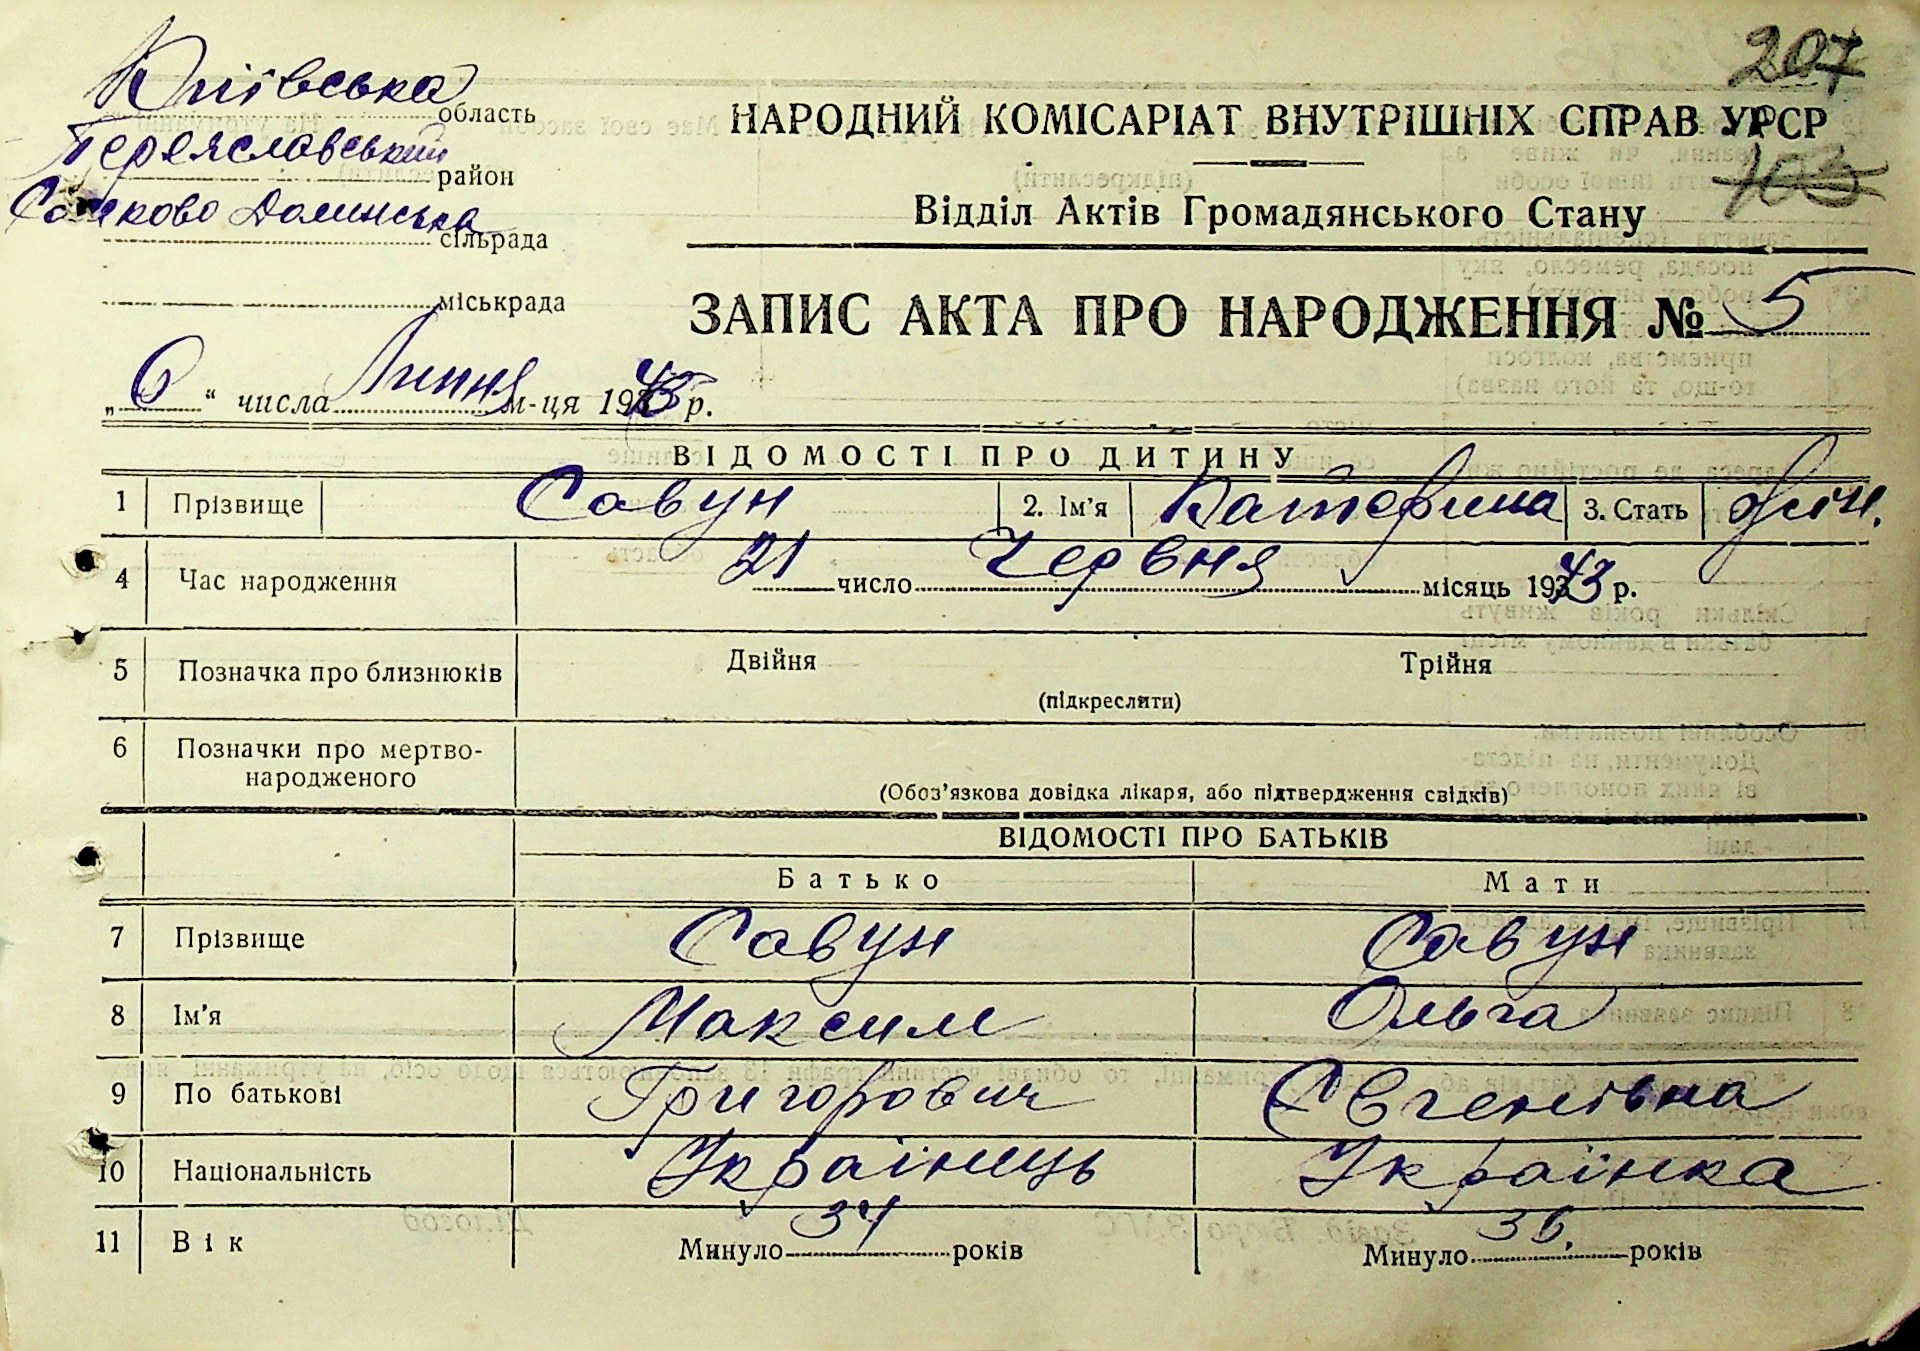 207
103
Київська область
Переяславський район
Сомково Долинська сільрада
міськрада
НАРОДНИЙ КОМІСАРІАТ ВНУТРІШНІХ СПРАВ УРСР
Відділ Актів Громадянського Стану
ЗАПИС АКТА ПРО НАРОДЖЕННЯ № 5
„6“ числа Липня м-ця 1943 р.
ВІДОМОСТІ ПРО ДИТИНУ
1 Прізвище Савун 2. Ім'я Катерина 3. Стать жіч.
4 Час народження 21 число Червня місяць 1943 р.
5 Позначка про близнюків Двійня Трійня
(підкреслити)
6 Позначки про мертво-
народженого
(Обоз'язкова довідка лікаря, або підтвердження свідків)
ВІДОМОСТІ ПРО БАТЬКІВ
Батько Мати
7 Прізвище Савун Савун
8 Ім'я Максим Ольга
9 По батькові Григорович Євгенівна
10 Національність Українець Українка
11 Вік Минуло 34 років Минуло 36. років